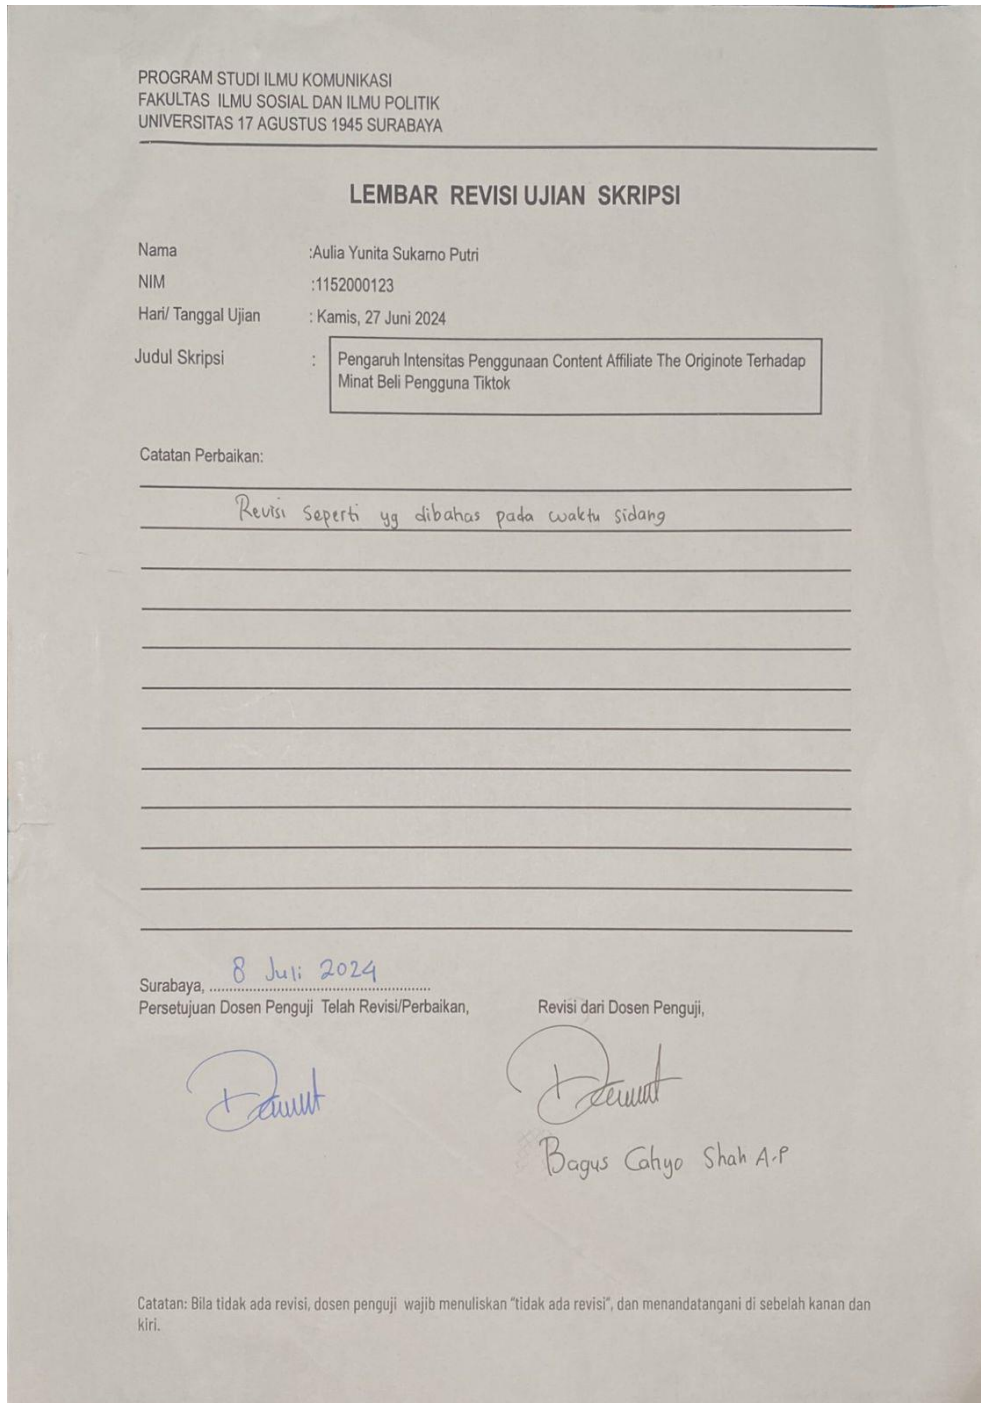 PROGRAM STUDI ILMU KOMUNIKASI
FAKULTAS ILMU SOSIAL DAN ILMU POLITIK
UNIVERSITAS 17 AGUSTUS 1945 SURABAYA
LEMBAR REVISI UJIAN SKRIPSI
Nama :Aulia Yunita Sukarno Putri
NIM :1152000123
Hari/ Tanggal Ujian : Kamis, 27 Juni 2024
Judul Skripsi : Pengaruh Intensitas Penggunaan Content Affiliate The Originote Terhadap
Minat Beli Pengguna Tiktok
Catatan Perbaikan:
Revisi seperti yg dibahas pada waktu sidang
Surabaya, 8 Juli 2024
Persetujuan Dosen Penguji Telah Revisi/Perbaikan, Revisi dari Dosen Penguji,
Bagus Cahyo Shah A.P
Catatan: Bila tidak ada revisi, dosen penguji wajib menuliskan "tidak ada revisi", dan menandatangani di sebelah kanan dan
kiri.